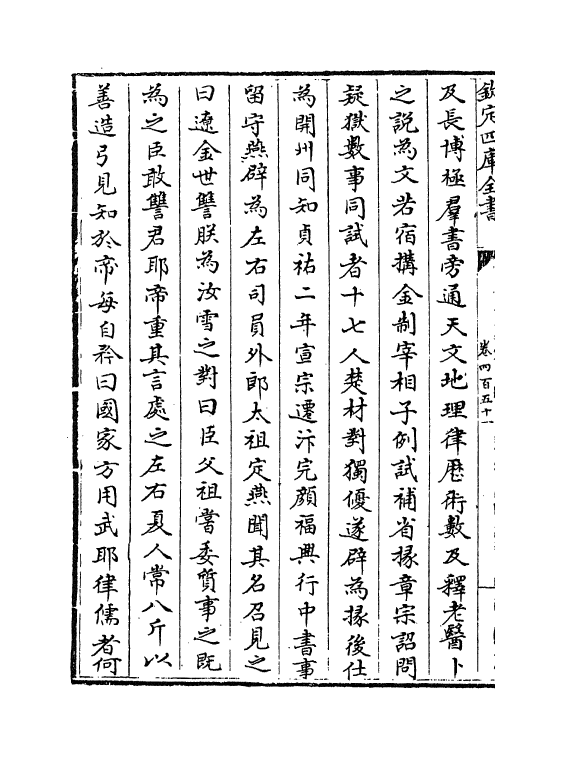 欽定四庫全書
卷四百五十一
及長博極羣書旁通天文地理律厯術數及釋老醫卜
之説為文若宿搆金制宰相子例試補省掾章宗詔問
疑獄數事同試者十七人楚材對獨優遂辟為掾後仕
為開州同知貞祐二年宣宗遷汴完顔福興行中書事
留守燕辟為左右司員外郎太祖定燕聞其名召見之
曰遼金世讐朕為汝雪之對曰臣父祖嘗委質事之既
為之臣敢讐君耶帝重其言處之左右夏人常八斤以
善造弓見知於帝每自矜曰國家方用武耶律儒者何